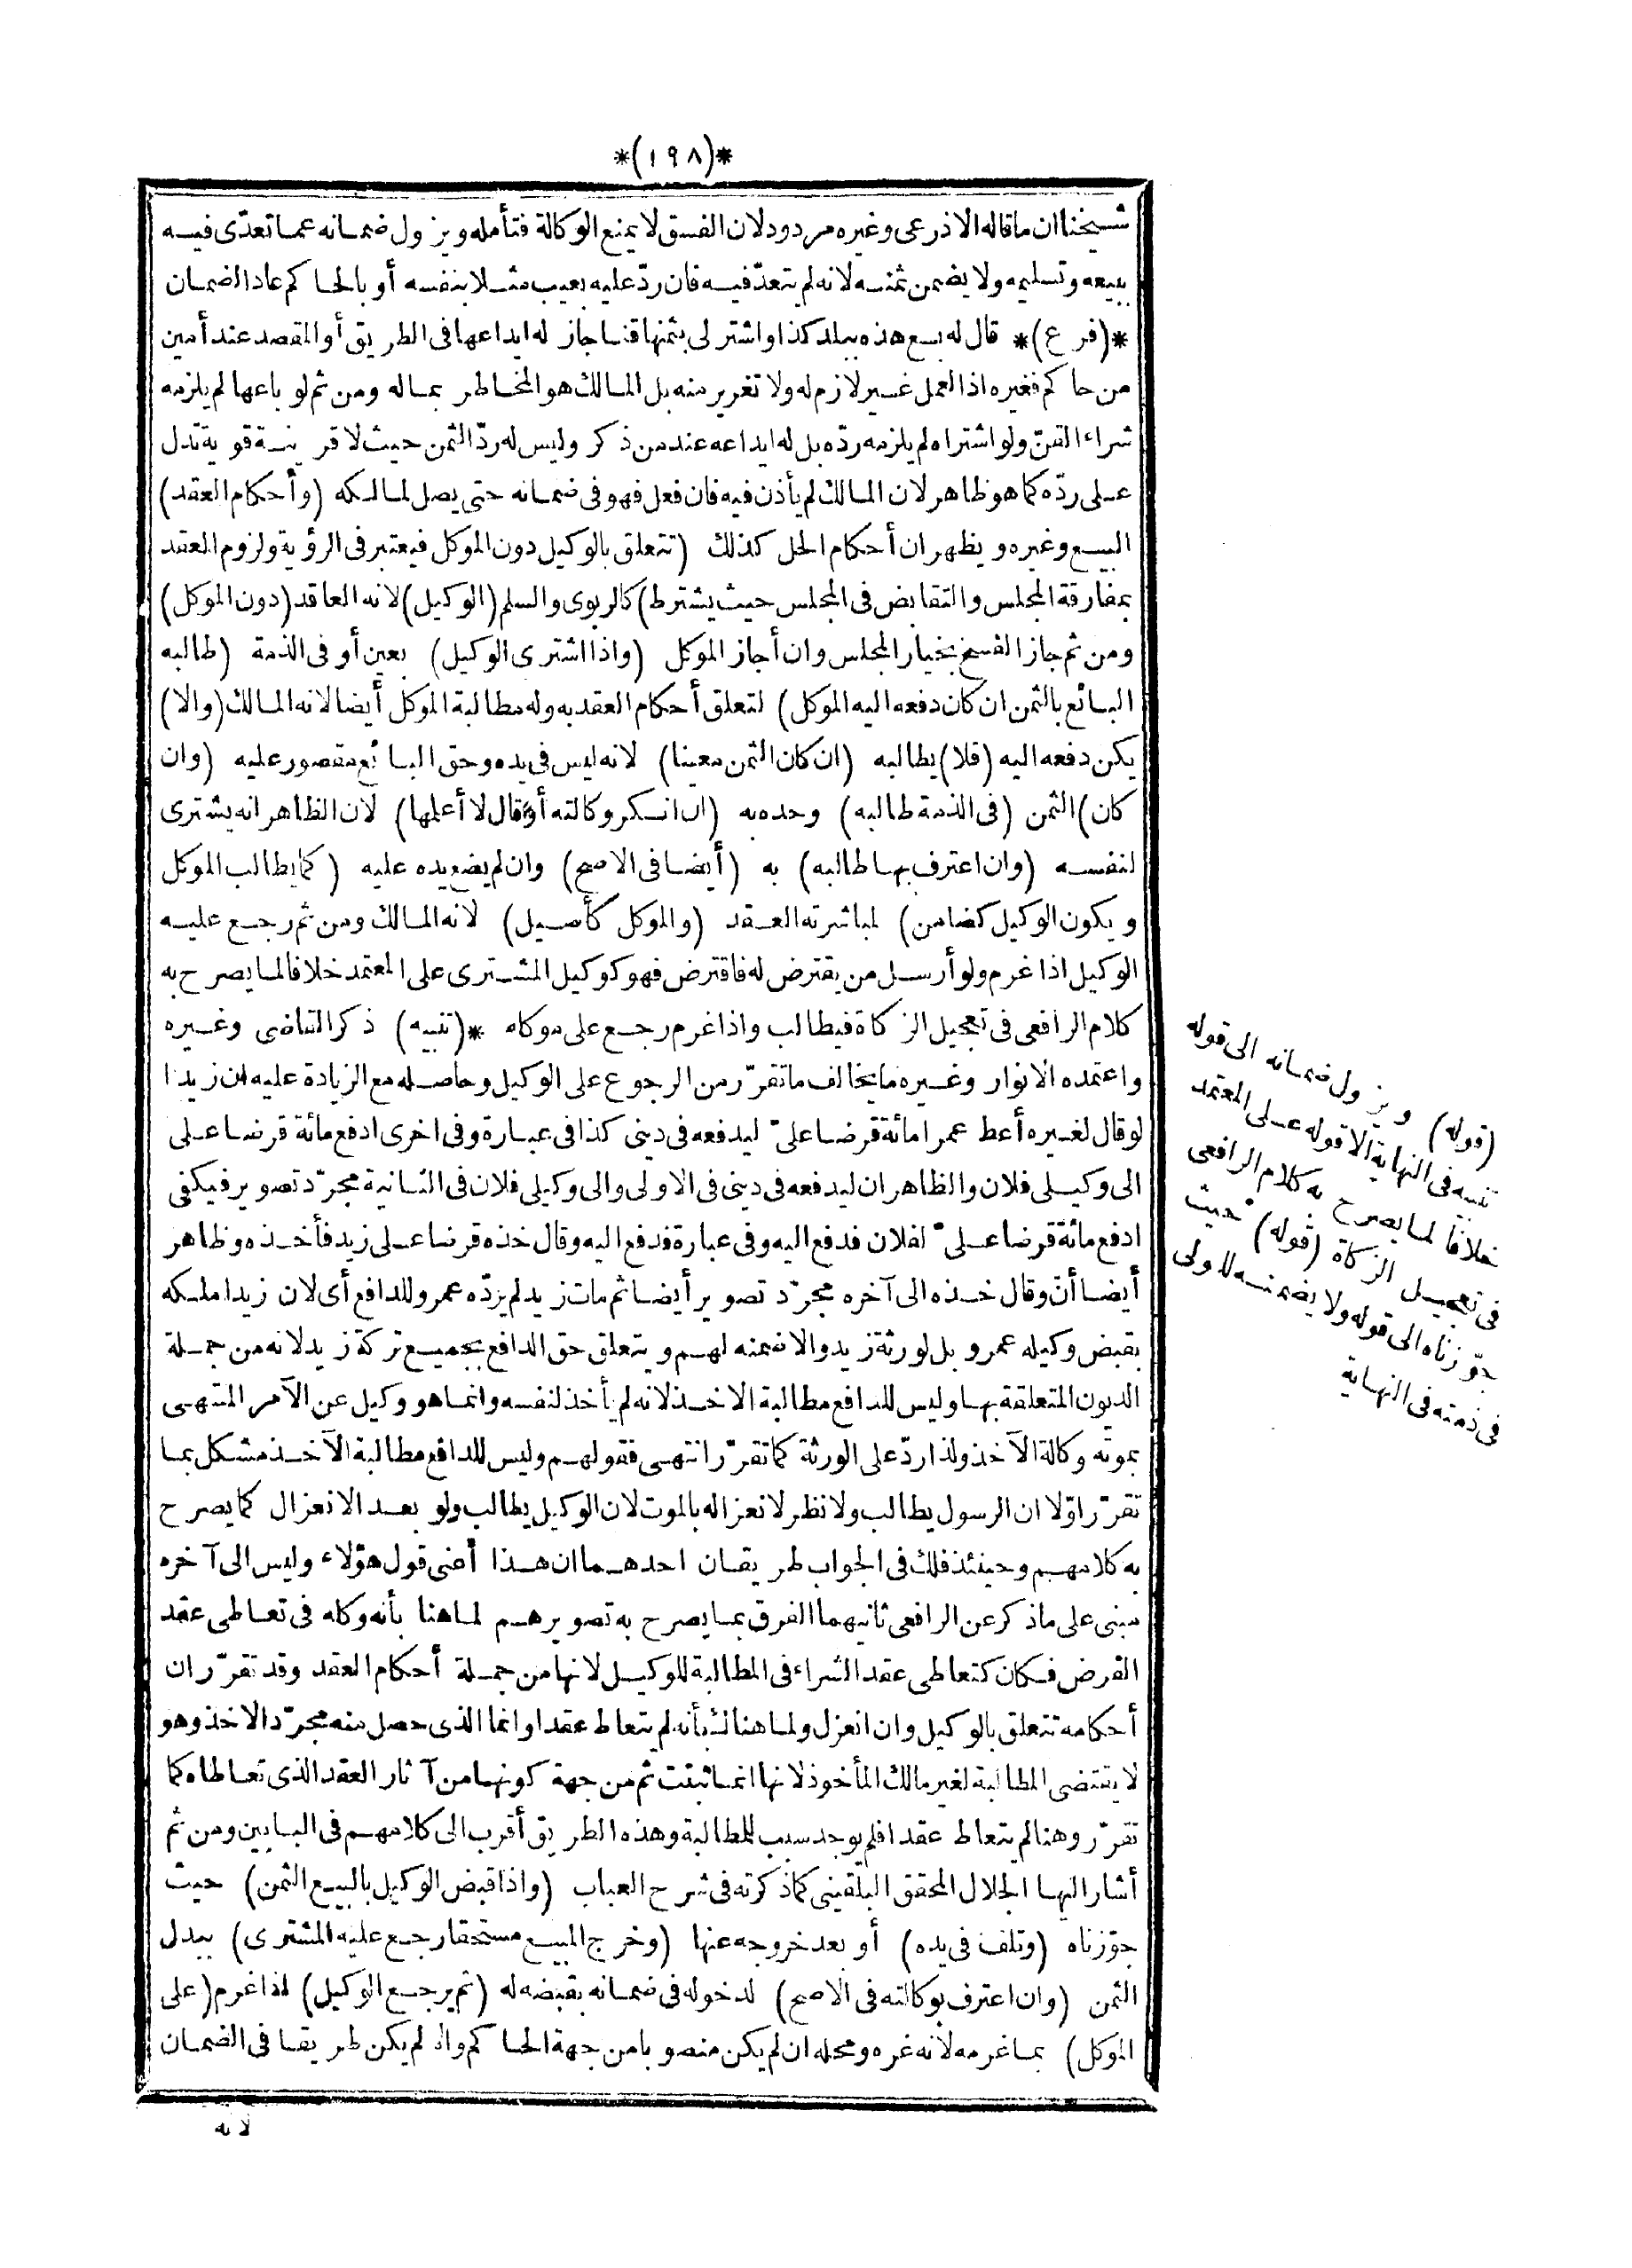 *(١٩٨)*
شيخنا ان ما قاله الاذرعى وغيره مردود لان الفسق لا يمنع الوكالة فتأمله ويزول ضمانه عما تعدّى فيه
ببيعه وتسليمه ولا يضمن ثمنه لانه لم يتعدّ فيه فان ردّ عليه بعيب مثلا بنفسه أو بالحاكم عاد الضمان
*(فرع)* قال له بع هذه ببلد كذا واشتر لى بثمنها قنا جاز له ايداعها فى الطريق أو المقصد عند أمين
من حاكم فغيره اذ العمل غير لازم له ولا تغرير منه بل المالك هو المخاطر بماله ومن ثم لو باعها لم يلزمه
شراء القنّ ولو اشتراه لم يلزمه ردّه بل له ايداعه عند من ذكر وليس له ردّ الثمن حيث لا قرينة قوية تدل
على ردّه كما هو ظاهر لان المالك لم يأذن فيه فان فعل فهو فى ضمانه حتى يصل لمالكه (وأحكام العقد)
البيع وغيره ويظهر ان أحكام الحل كذلك (تتعلق بالوكيل دون الموكل فيعتبر فى الرؤية ولزوم العقد
بمفارقة المجلس والتقابض فى المجلس حيث يشترط) كالربوى والسلم (الوكيل) لانه العاقد (دون الموكل)
ومن ثم جاز الفسخ بخيار المجلس وان أجاز الموكل (واذا اشترى الوكيل) بعين أو فى الذمة (طالبه
البائع بالثمن ان كان دفعه اليه الموكل) لتعلق أحكام العقد به وله مطالبة الموكل أيضا لانه المالك (والا)
يكن دفعه اليه (فلا) يطالبه (ان كان الثمن معينا) لانه ليس فى يده وحق البائع مقصور عليه (وان
كان) الثمن (فى الذمة طالبه) وحده به (ان انكر وكالته أو قال لا أعلمها) لان الظاهر انه يشترى
لنفسه (وان اعترف بها طالبه) به (أيضا فى الاصح) وان لم يضع يده عليه (كما يطالب الموكل
ويكون الوكيل كضامن) لمباشرته العقد (والموكل كأصيل) لانه المالك ومن ثم رجع عليه
الوكيل اذا غرم ولو أرسل من يقترض له فاقترض فهو كوكيل المشترى على المعتمد خلافا لما يصرح به
كلام الرافعى فى تعجيل الزكاة فيطالب واذا غرم رجع على موكله *(تنبيه) ذكر القاضى وغيره
واعتمده الانوار وغيره ما يخالف ما تقرّر من الرجوع على الوكيل وحاصله مع الزيادة عليه ان زيدا
لو قال لغيره أعط عمرا مائة قرضا علىّ ليدفعه فى دينى كذا فى عبارة وفى اخرى ادفع مائة قرضا على
الى وكيلى فلان والظاهر ان ليدفعه فى دينى فى الاولى والى وكيلى فلان فى الثانية مجرّد تصوير فيكفى
ادفع مائة قرضا علىّ لفلان فدفع اليه وفى عبارة فدفع اليه وقال خذه قرضا على زيد فأخذه وظاهر
أيضا أنّ وقال خذه الى آخره مجرّد تصوير أيضا ثم مات زيد لم يردّه عمرو للدافع أى لان زيدا ملكه
بقبض وكيله عمرو بل لورثة زيد والا ضمنه لهم ويتعلق حق الدافع بجميع تركة زيد لانه من جملة
الديون المتعلقة بها وليس للدافع مطالبة الاخذ لانه لم يأخذ لنفسه وانما هو وكيل عن الآمر المنتهى
بموته وكالة الآخذ ولذا ردّ على الورثة كما تقرّر انتهى فقولهم وليس للدافع مطالبة الآخذ مشكل بما
تقرّر اوّلا ان الرسول يطالب ولا نظر لانعزاله بالموت لان الوكيل يطالب ولو بعد الانعزال كما يصرح
به كلامهم وحينئذ فلك فى الجواب طريقان احدهما ان هذا أعنى قول هؤلاء وليس الى آخره
مبنى على ما ذكر عن الرافعى ثانيهما الفرق بما يصرح به تصويرهم لما هنا بأنه وكله فى تعاطى عقد
القرض فكان كتعاطى عقد الشراء فى المطالبة للوكيل لانها من جملة أحكام العقد وقد تقرّر ان
أحكامه تتعلق بالوكيل وان انعزل ولما هنالك بأنه لم يتعاط عقدا وانما الذى حصل منه مجرّد الاخذ وهو
لا يقتضى المطالبة لغير مالك المأخوذ لانها انما ثبتت ثم من جهة كونها من آثار العقد الذى تعاطاه كما
تقرّر وهنا لم يتعاط عقدا فلم يوجد سبب للمطالبة وهذه الطريق أقرب الى كلامهم فى البابين ومن ثم
أشار اليها الجلال المحقق البلقينى كما ذكرته فى شرح العباب (واذا قبض الوكيل بالبيع الثمن) حيث
جوّزناه (وتلف فى يده) أو بعد خروجه عنها (وخرج المبيع مستحقا رجع عليه المشترى) ببدل
الثمن (وان اعترف بوكالته فى الاصح) لدخوله فى ضمانه بقبضه له (ثم يرجع الوكيل) اذا غرم (على
الموكل) بما غرمه لانه غره ومحله ان لم يكن منصوبا من جهة الحاكم والا لم يكن طريقا فى الضمان
لانه
(قوله) ويزول ضمانه الى قوله
تنبيه فى النهاية الا قوله على المعتمد
خلافا لما يصرح به كلام الرافعى
فى تعجيل الزكاة (قوله) حيث
جوّزناه الى قوله ولا يضمنه للاولى
فى ذمته فى النهاية